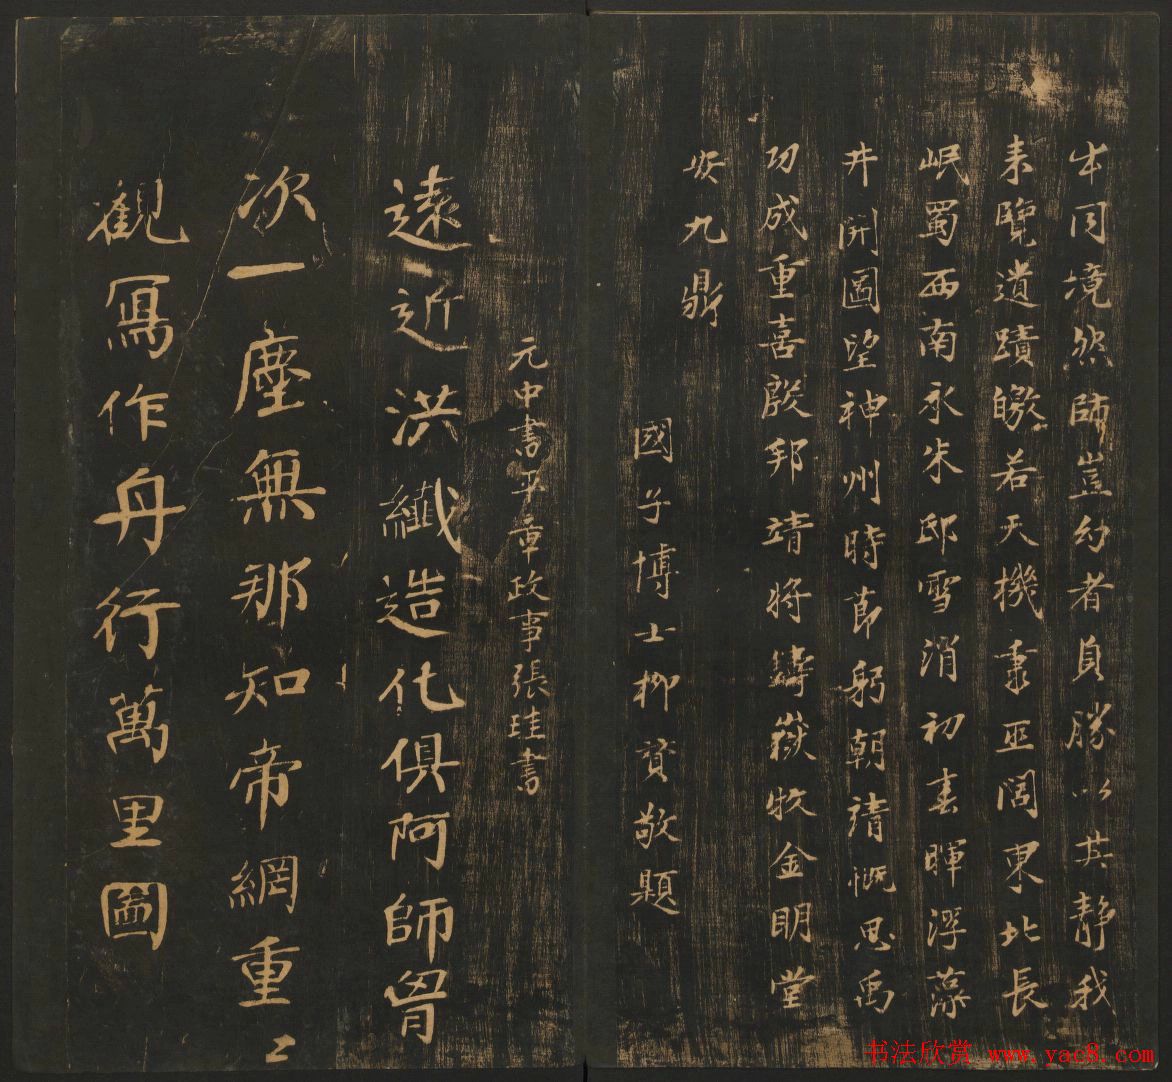 出同境然師豈幻者貞勝以其靜我
来覽遺蹟皦若天機秉巫閭東北長
岷蜀西南永朱邸雪消初春暉浮藻
井開圖望神州時節躬朝請慨思禹
功成重喜殷邦靖將鑄嶽牧金明堂
安九鼎
國子博士柳貫敬題
元中書平章政事張珪書
遠近洪纖造化俱阿師胷
次一塵無那知帝網重〻
觀寫作舟行萬里圖
书法欣赏 www.yac8.com